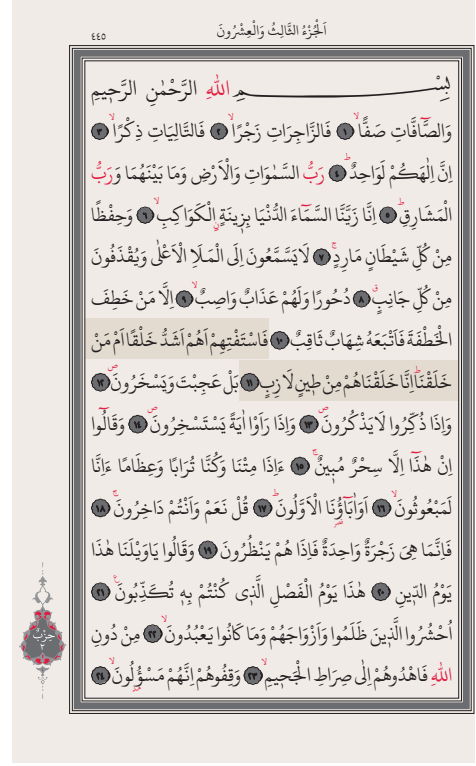 اَلْجُزْءُ الثَّالِثُ وَالْعِشْرُونَ
٤٤٥
بِسْمِ اللهِ الرَّحْمٰنِ الرَّحِيمِ
وَالصَّٓافَّاتِ صَفًّاۙ ﴿١﴾ فَالزَّاجِرَاتِ زَجْرًاۙ ﴿٢﴾ فَالتَّالِيَاتِ ذِكْرًاۙ ﴿٣﴾
اِنَّ اِلٰهَكُمْ لَوَاحِدٌۜ ﴿٤﴾ رَبُّ السَّمٰوَاتِ وَالْاَرْضِ وَمَا بَيْنَهُمَا وَرَبُّ
الْمَشَارِقِۜ ﴿٥﴾ اِنَّا زَيَّنَّا السَّمَٓاءَ الدُّنْيَا بِزِينَةٍۨ الْكَوَاكِبِۙ ﴿٦﴾ وَحِفْظًا
مِنْ كُلِّ شَيْطَانٍ مَارِدٍۚ ﴿٧﴾ لَا يَسَّمَّعُونَ اِلَى الْمَلَأِ الْاَعْلٰى وَيُقْذَفُونَ
مِنْ كُلِّ جَانِبٍۗ ﴿٨﴾ دُحُورًا وَلَهُمْ عَذَابٌ وَاصِبٌۙ ﴿٩﴾ اِلَّا مَنْ خَطِفَ
الْخَطْفَةَ فَاَتْبَعَهُ شِهَابٌ ثَاقِبٌ ﴿١٠﴾ فَاسْتَفْتِهِمْ اَهُمْ اَشَدُّ خَلْقًا اَمْ مَنْ
خَلَقْنَاۜ اِنَّا خَلَقْنَاهُمْ مِنْ طِينٍ لَازِبٍ ﴿١١﴾ بَلْ عَجِبْتَ وَيَسْخَرُونَۖ ﴿١٢﴾
وَاِذَا ذُكِّرُوا لَا يَذْكُرُونَۖ ﴿١٣﴾ وَاِذَا رَاَوْا اٰيَةً يَسْتَسْخِرُونَۖ ﴿١٤﴾ وَقَالُٓوا
اِنْ هٰذَٓا اِلَّا سِحْرٌ مُبِينٌۚ ﴿١٥﴾ ءَاِذَا مِتْنَا وَكُنَّا تُرَابًا وَعِظَامًا ءَاِنَّا
لَمَبْعُوثُونَۙ ﴿١٦﴾ اَوَاٰبَٓاؤُ۬نَا الْاَوَّلُونَۜ ﴿١٧﴾ قُلْ نَعَمْ وَاَنْتُمْ دَاخِرُونَۚ ﴿١٨﴾
فَاِنَّمَا هِيَ زَجْرَةٌ وَاحِدَةٌ فَاِذَا هُمْ يَنْظُرُونَ ﴿١٩﴾ وَقَالُوا يَاوَيْلَنَا هٰذَا
يَوْمُ الدِّينِ ﴿٢٠﴾ هٰذَا يَوْمُ الْفَصْلِ الَّذِي كُنْتُمْ بِهِ تُكَذِّبُونَ۟ ﴿٢١﴾
اُحْشُرُوا الَّذِينَ ظَلَمُوا وَاَزْوَاجَهُمْ وَمَا كَانُوا يَعْبُدُونَۙ ﴿٢٢﴾ مِنْ دُونِ
اللهِ فَاهْدُوهُمْ اِلٰى صِرَاطِ الْجَحِيمِۙ ﴿٢٣﴾ وَقِفُوهُمْ اِنَّهُمْ مَسْؤُ۫لُونَۙ ﴿٢٤﴾
حِزْبُ
٢